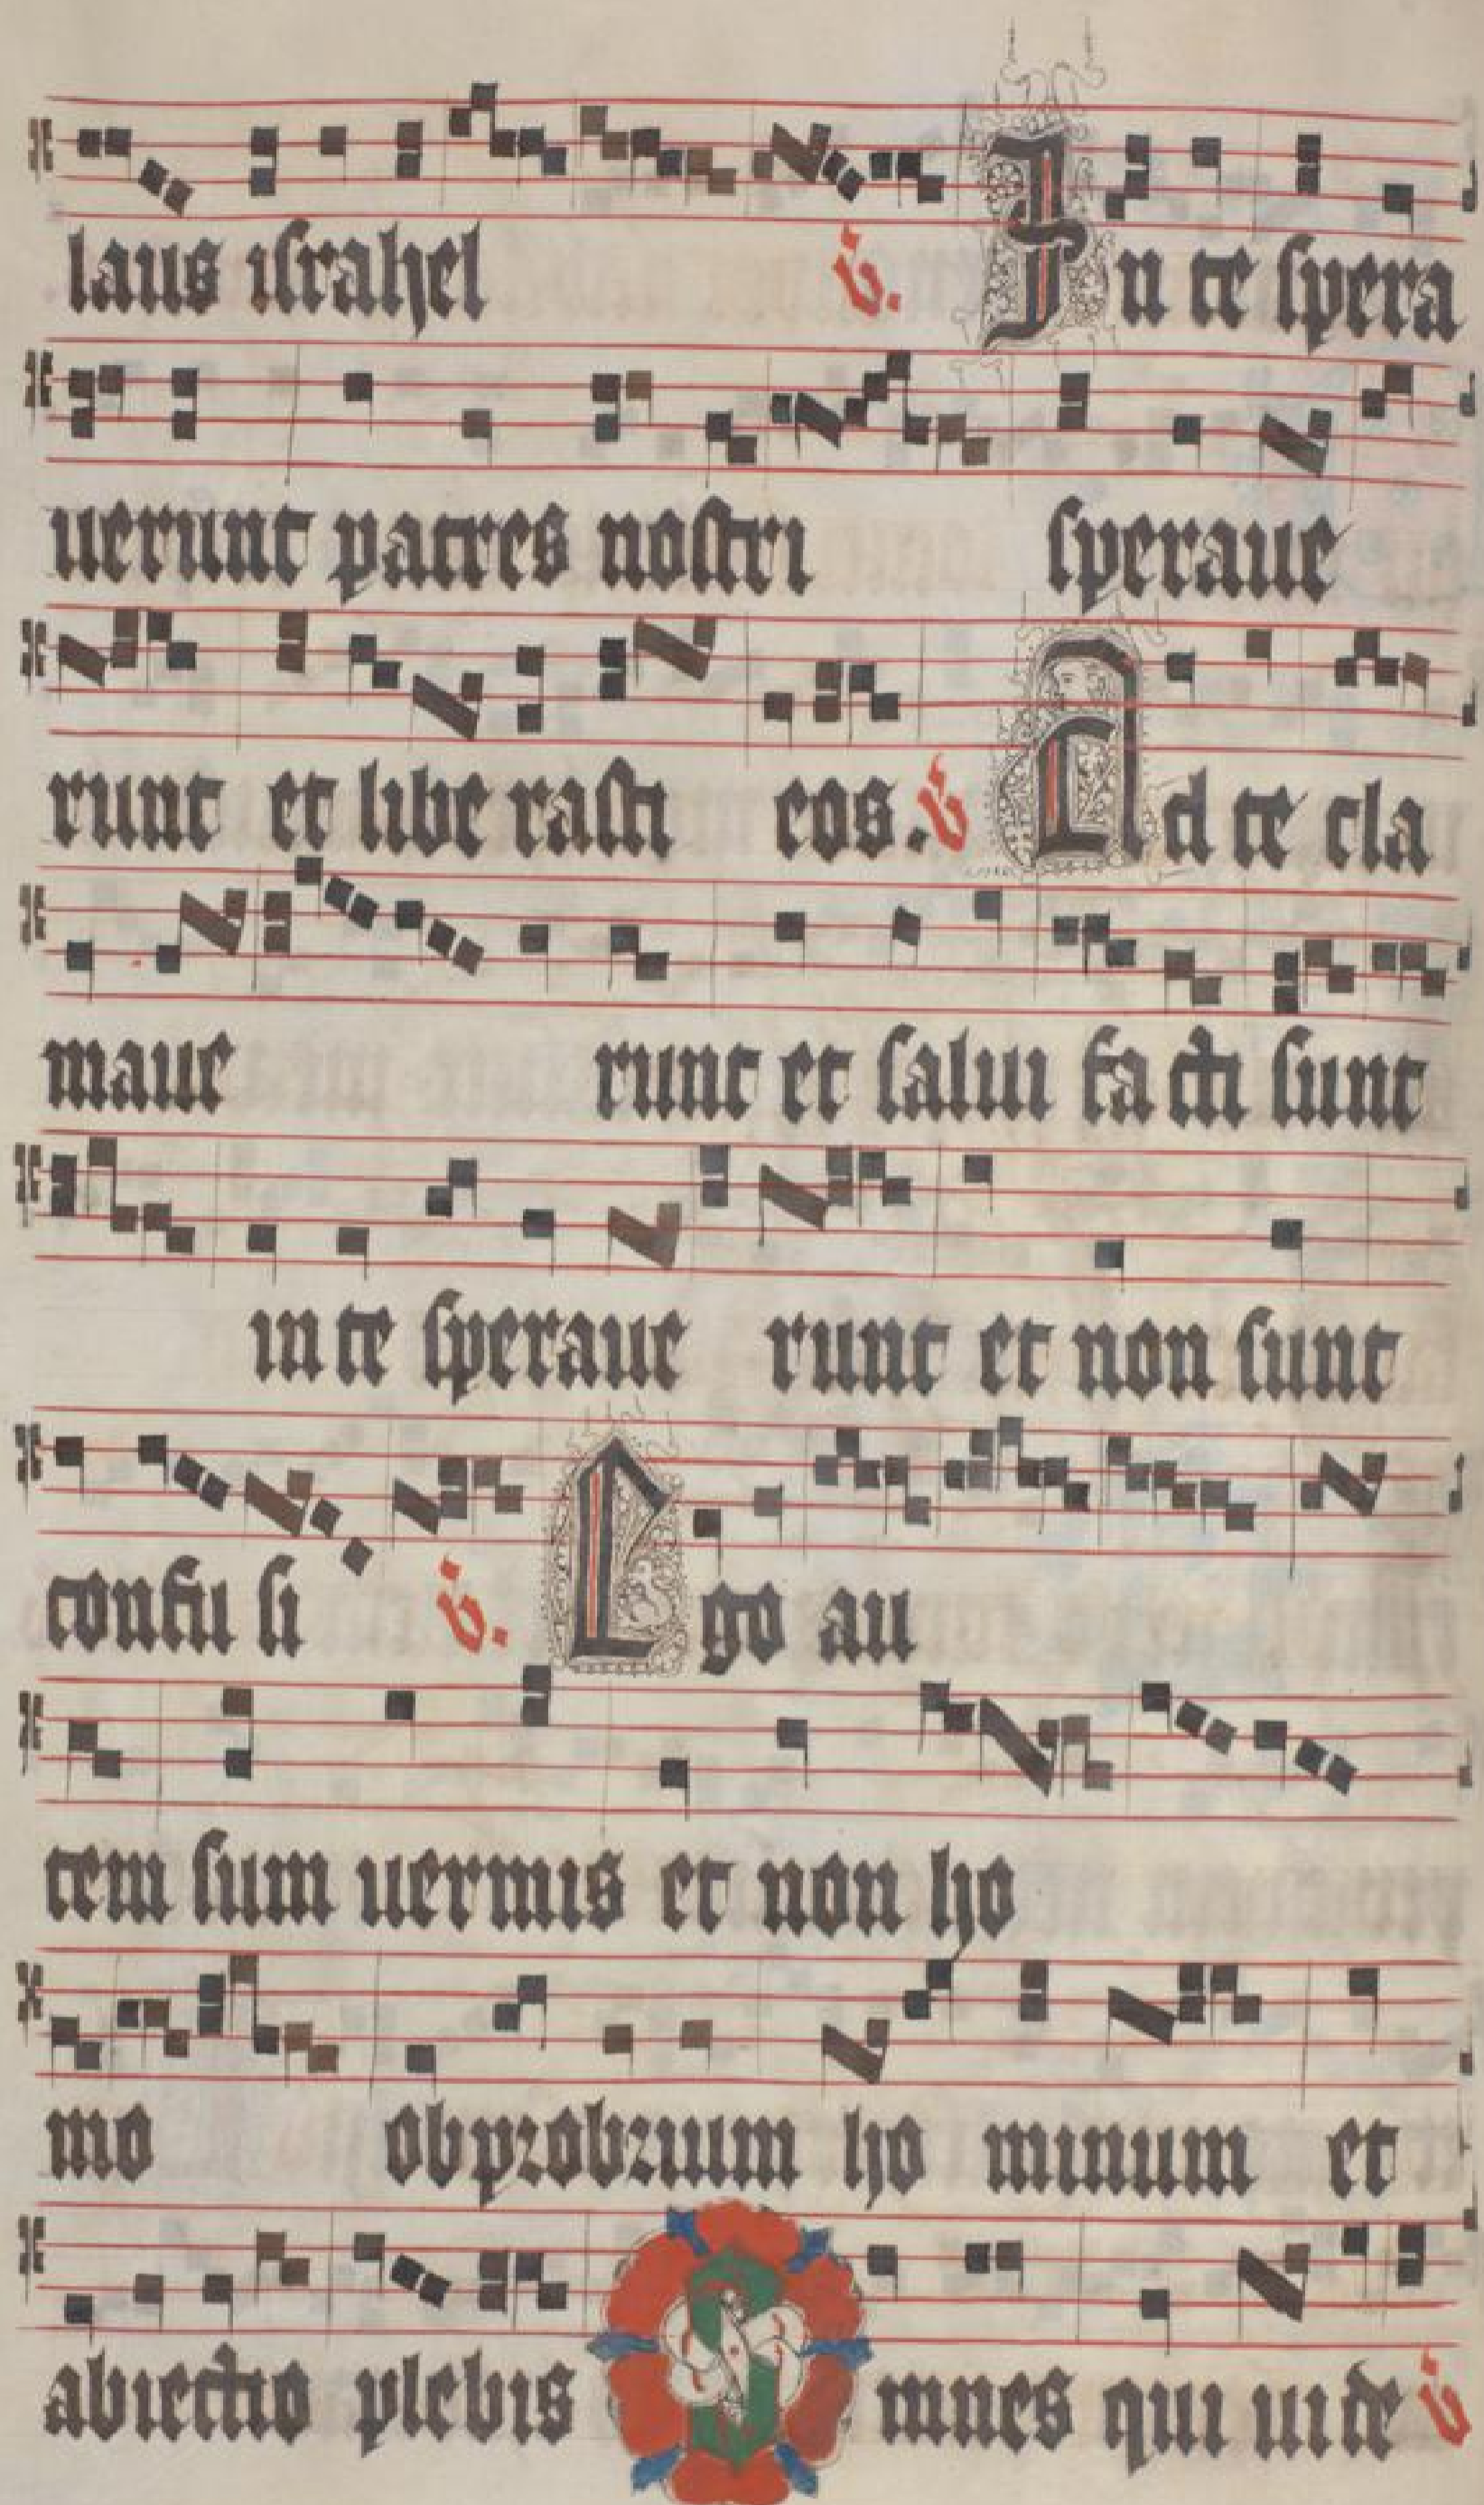 laus israhel V. In te spera
uerunt patres nostri speraue
runt et libe rasti eos. V Ad te cla
maue runt et salui fa cti sunt
in te speraue runt et non sunt
confu si V. Ego au
tem sum uermis et non ho
mo obprobrium ho minum et
abiectio plebis Omnes qui uide V